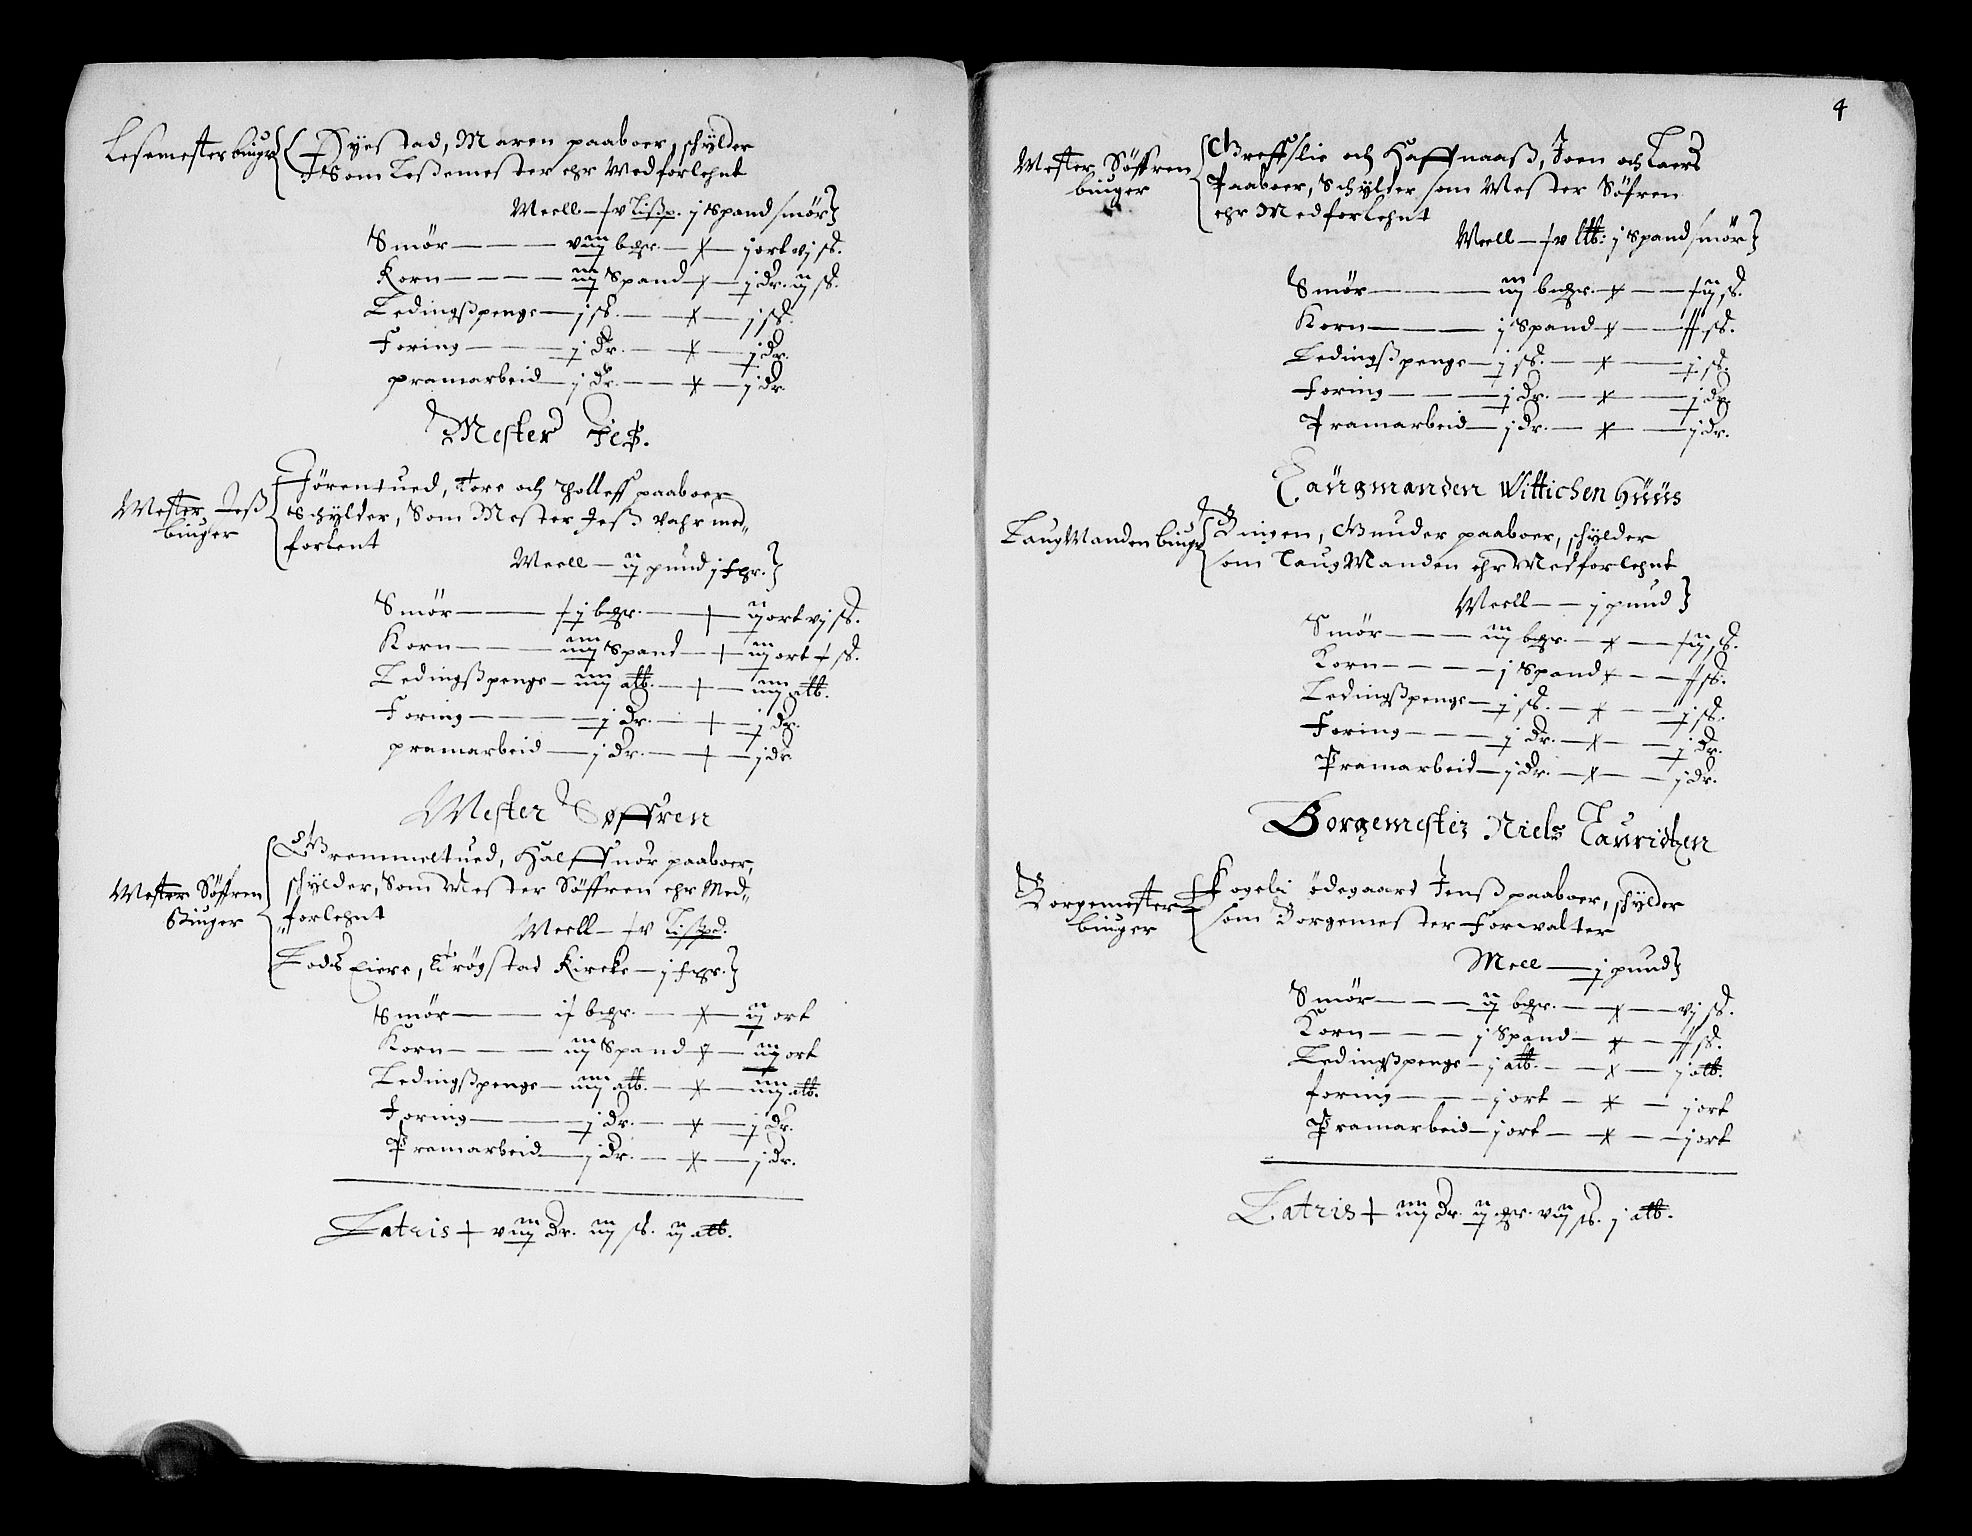 Lesemester biuger
Dyestad, Maren paaboer, schylder
Som Leßemester ehr Medforlehnt
Meell — ƒv Lißp. j Spand smør
Smør — viij beger. — x — j ort vj sk.
Korn — iij Spand — x — j dr. ij sk.
Ledingßpenge — j sk. — x — j sk.
Foring — j dr. — x — j dr.
pramarbeid — j dr. — x — j dr.
Mester Jeß.
Mester Jeß
biuger
Jörentued, Tore och Tolleff paaboer
Schylder, Som Mester Jeß vahr med-
forlent
Meell — ij pund j fgr.
Smør — ƒj beger. — + — ij ort vj sk.
Korn — iiij Spand — + — iij ort ƒ sk.
Ledingßpenge — iiij alb. — + — iiij alb.
Foring — j dr. — + — j dr.
pramarbeid — j dr. — + — j dr.
Mester Søffren
Mester Söffren
Biuger
Gremmeltued, Halffuor paaboer,
schylder, Som Mester Söffren ehr Med-
forlehnt
Meell — ƒv Lißpd.
Lods Eiere, Trögstad Kircke — j fgr.
Smør — iƒ beger. — x — ij ort
Korn — iij Spand — x — iij ort
Ledingßpenge — iiij alb. — x — iiij alb.
Foring — j dr. — x — j dr.
Pramarbeid — j dr. — x — j dr.
Latris + viij dr. iij sk. ij alb.
4
Mester Söffren
biuger
Greffslie och Haffnaaß, Joen och Laers
Paaboer, Schylder som Mester Söfren
ehr Medforlehnt
Meell — ƒv ltb: j Spand smør
Smør — iij beger. — x — ƒij sk.
Korn — j Spand — x — ƒƒ sk.
Ledingßpenge — j sk. — x — j sk.
Foring — j dr. — x — j dr.
Pramarbeid — j dr. — x — j dr.
Laugmanden Wittichen Huus
LaugManden biuger
Ringen, Gunder paaboer, schylder
som LaugManden ehr Medforlehnt
Meell — j pund
Smør — iij beger. — x — ƒij sk.
Korn — j Spand — x — ƒƒ sk.
Ledingßpenge — j sk. — x — j sk.
Foring — j dr. — x — j dr.
Pramarbeid — j dr. — x — j dr.
Borgemester Niels Lauridtzen
Borgemester
biuger
Fogeli ödegaard Jenß paaboer, schylder
som Borgemester Forwalter
Meel — j pund
Smør — ij beger. — x — vj sk.
Korn — j Spand — x — ƒƒ sk.
Ledingßpenge — j alb. — x — j alb.
foring — j ort — x — j ort
Pramarbeid — j ort — x — j ort
Latris + iiij dr. ij gr. vij sk. j alb.